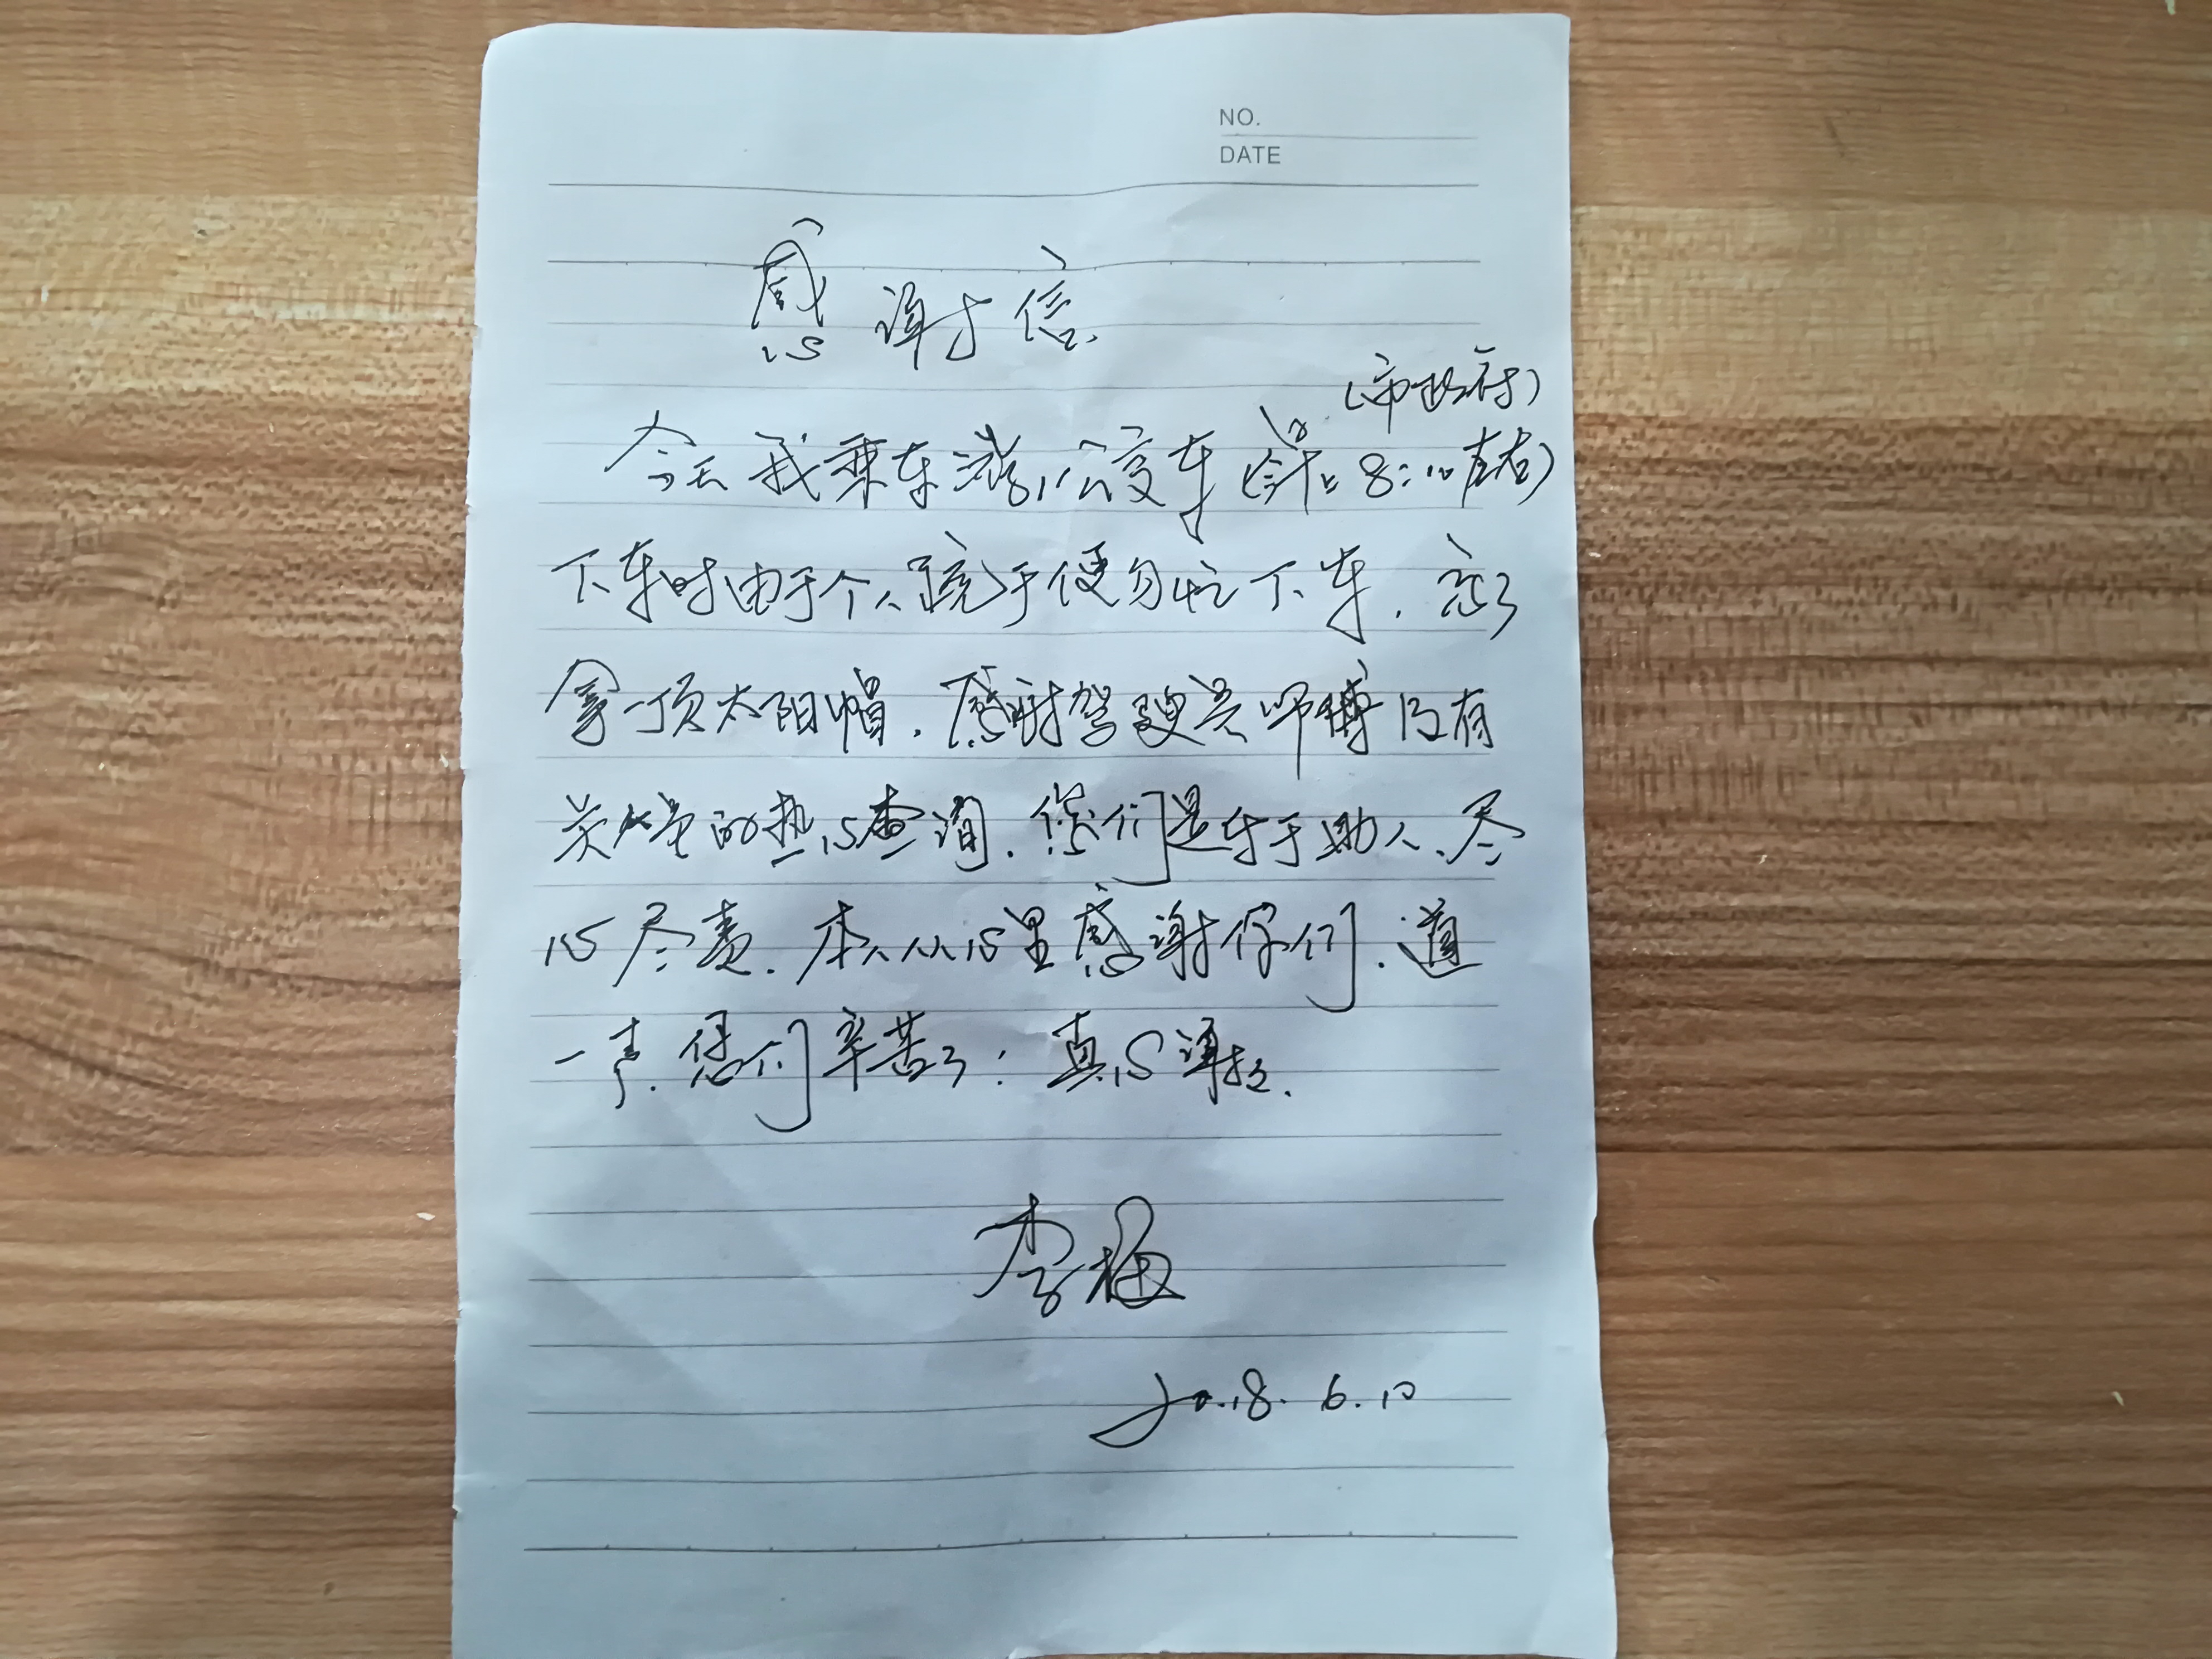 NO.
DATE
感谢信
(市政府)
今天我乘车游1公交车(今早上8:10左右)
下车时由于个人疏于便匆忙下车.忘了
拿一顶太阳帽.感谢驾驶员师傅及有
关的热心查询.您们是乐于助人、尽
心尽责.本人从心里感谢你们.道
一声.您们辛苦了:真心谢谢.
李梅
2018.6.10